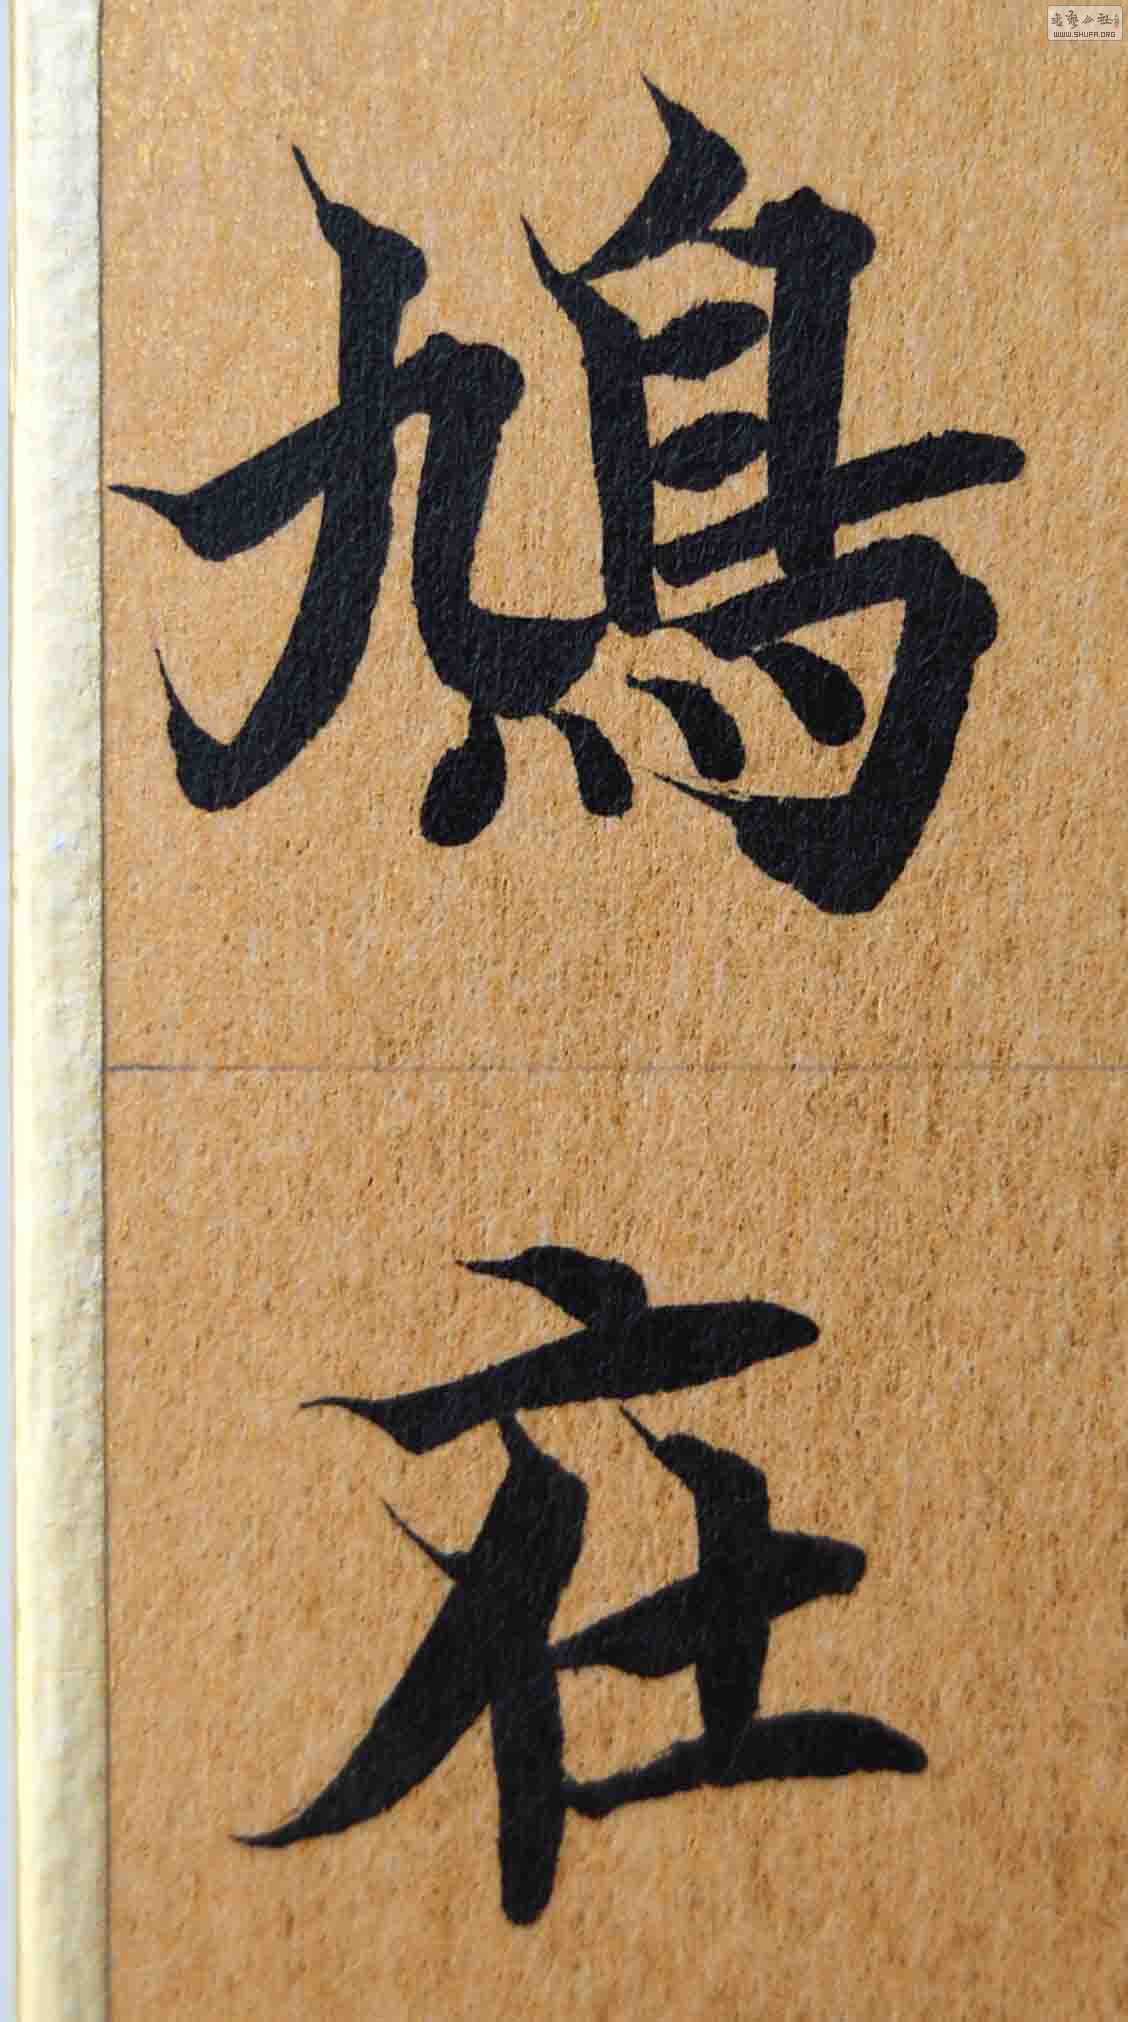 書藝公社
WWW.SHUFA.ORG
鳩
在